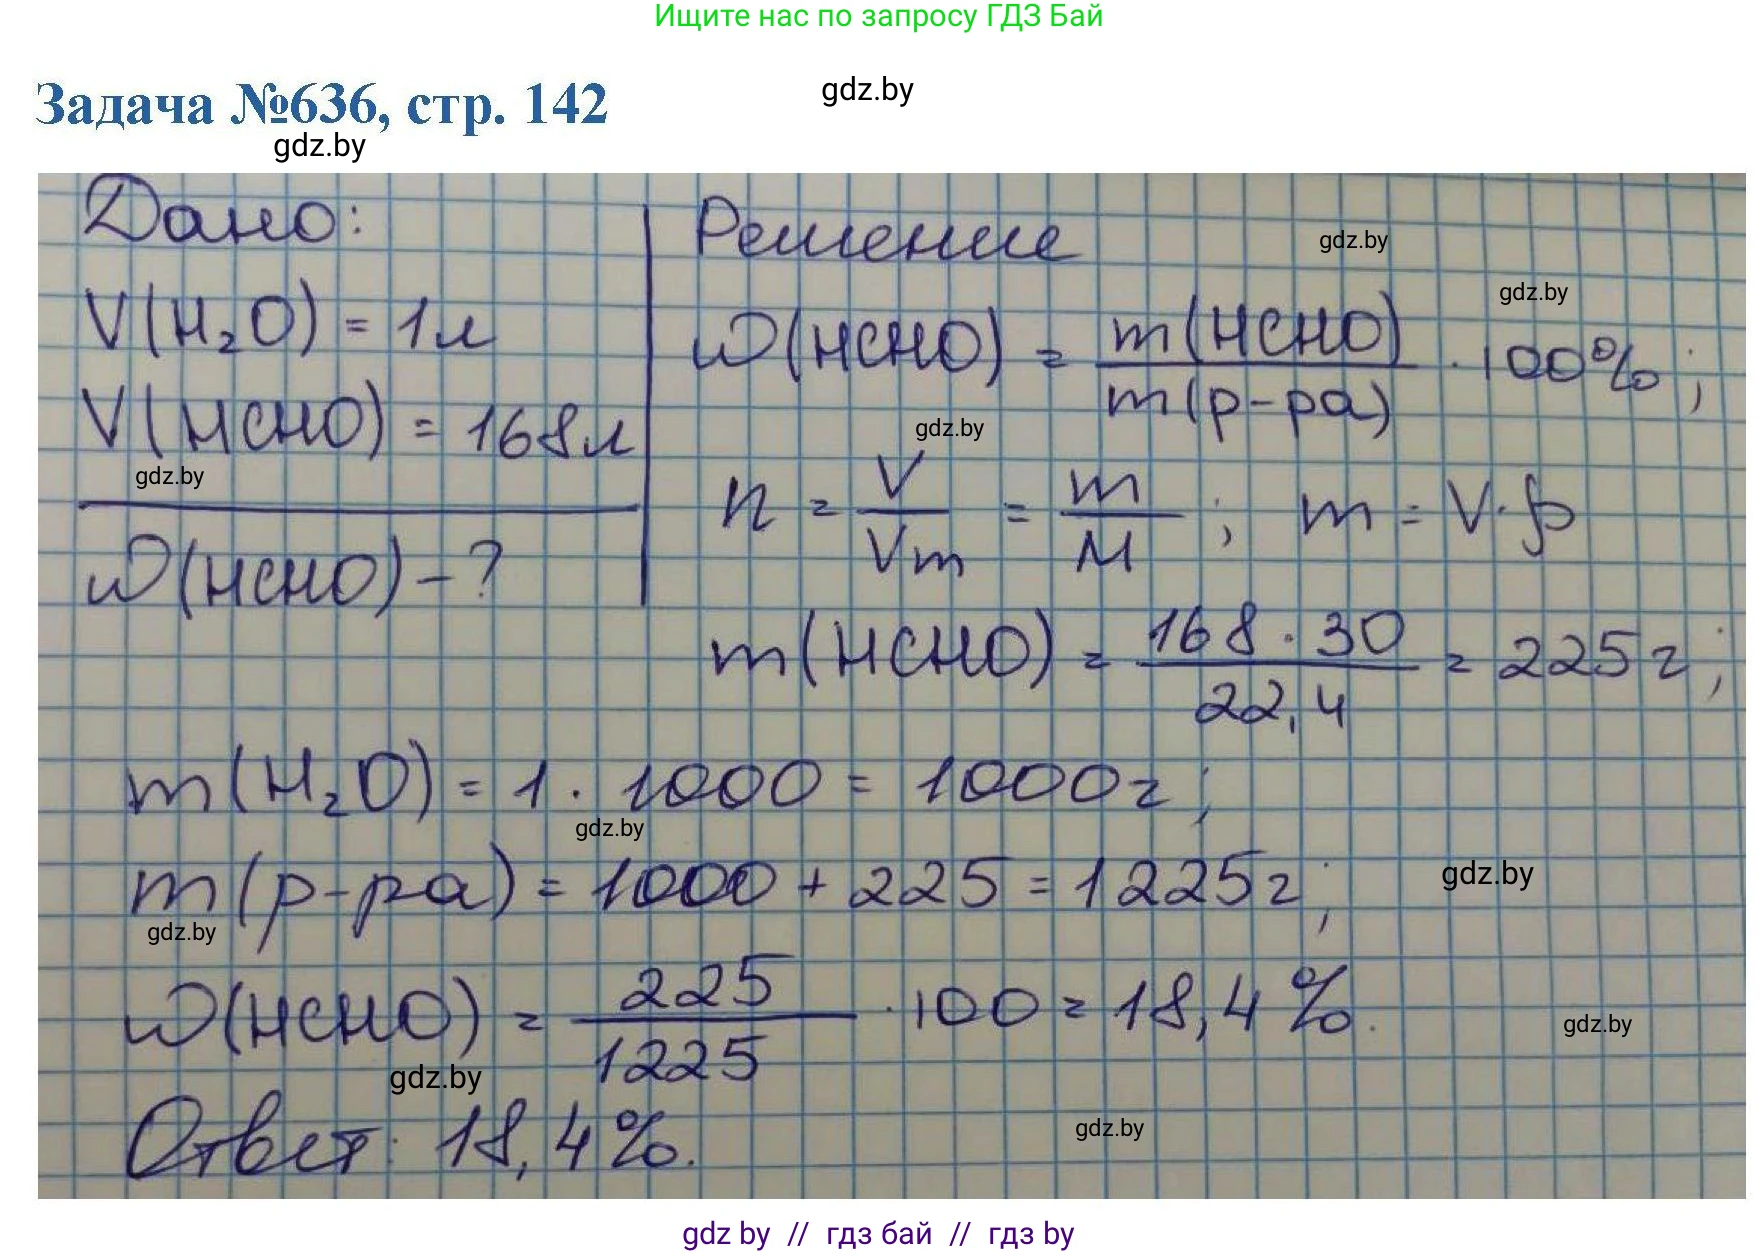 Ищите нас по запросу ГДЗ Бай
gdz.by
Задача №636, стр. 142
gdz.by
Дано:
V(H₂O) = 1л
V(HCHO) = 168л
gdz.by
ω(HCHO) - ?
Решение
gdz.by
gdz.by
ω(HCHO) = m(HCHO) / m(р-ра) · 100%;
gdz.by
n = V / Vm = m / M ; m = V·ρ
m(HCHO) = 168 · 30 / 22,4 = 225г;
m(H₂O) = 1 · 1000 = 1000г;
gdz.by
m(р-ра) = 1000 + 225 = 1225г;
gdz.by
gdz.by
ω(HCHO) = 225 / 1225 · 100 = 18,4%.
gdz.by
gdz.by
Ответ: 18,4%.
gdz.by
gdz by // гдз бай // гдз by